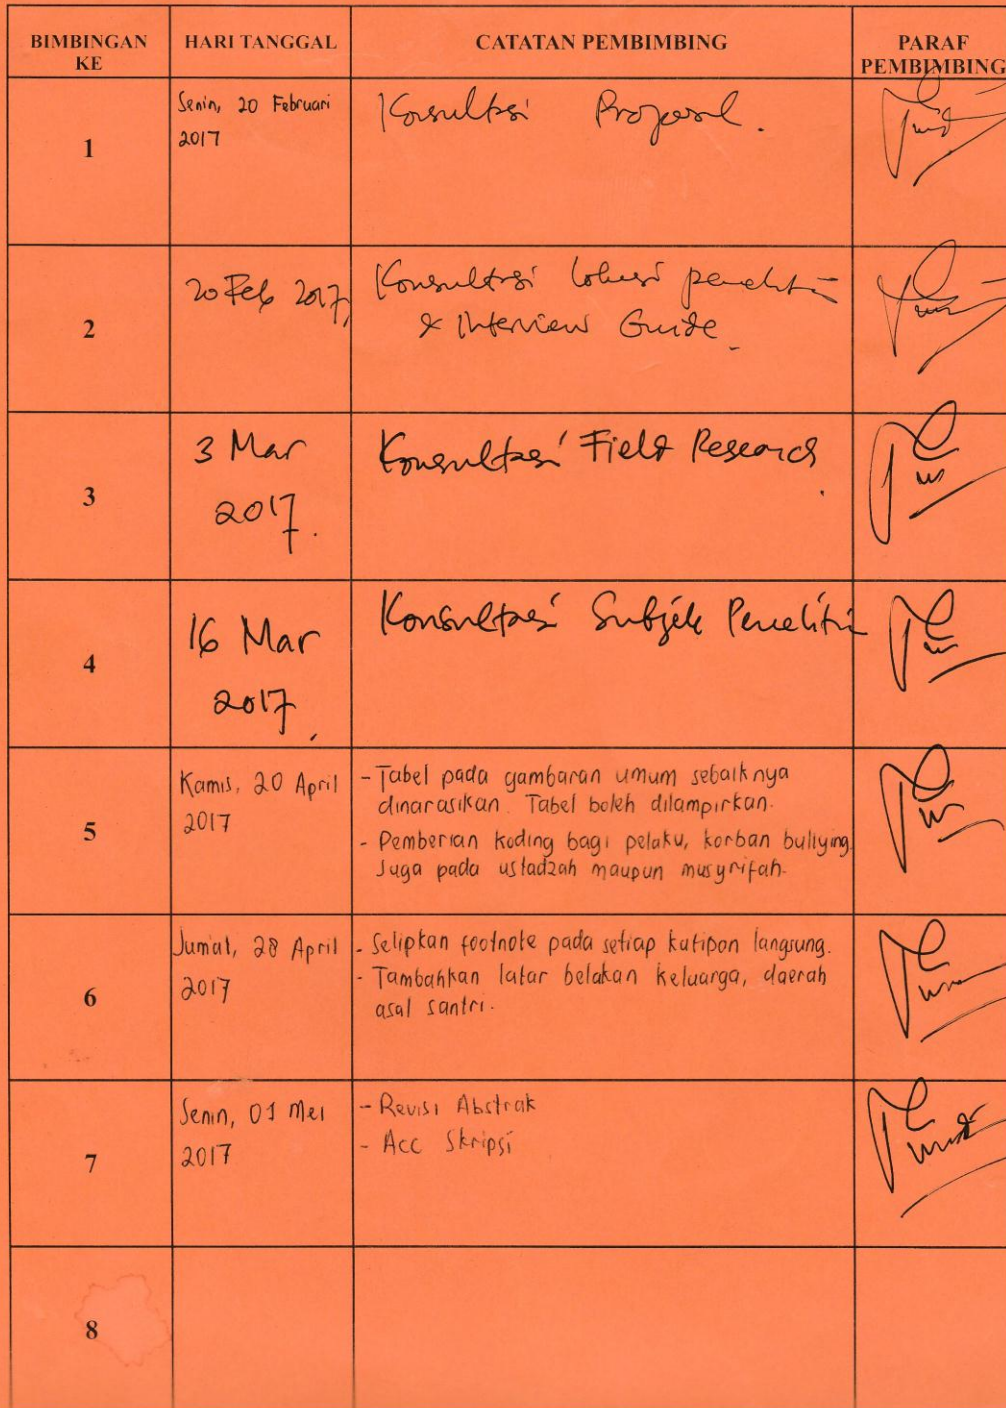 BIMBINGAN KE
HARI TANGGAL
CATATAN PEMBIMBING
PARAF PEMBIMBING
1
Senin, 20 Februari
2017
Konsultasi Proposal.
2
20 Feb 2017,
Konsultasi lokasi peneliti
& Interview Guide.
3
3 Mar
2017.
Konsultasi Field Research.
4
16 Mar
2017,
Konsultasi Subjek Peneliti
5
Kamis, 20 April
2017
- Tabel pada gambaran umum sebaiknya
dinarasikan. Tabel boleh dilampirkan.
- Pemberian koding bagi pelaku, korban bullying.
Juga pada ustadzah maupun musyrifah.
6
Jum'at, 28 April
2017
- Selipkan footnote pada setiap kutipan langsung.
- Tambahkan latar belakan keluarga, daerah
asal santri.
7
Senin, 01 Mei
2017
- Revisi Abstrak
- Acc Skripsi
8